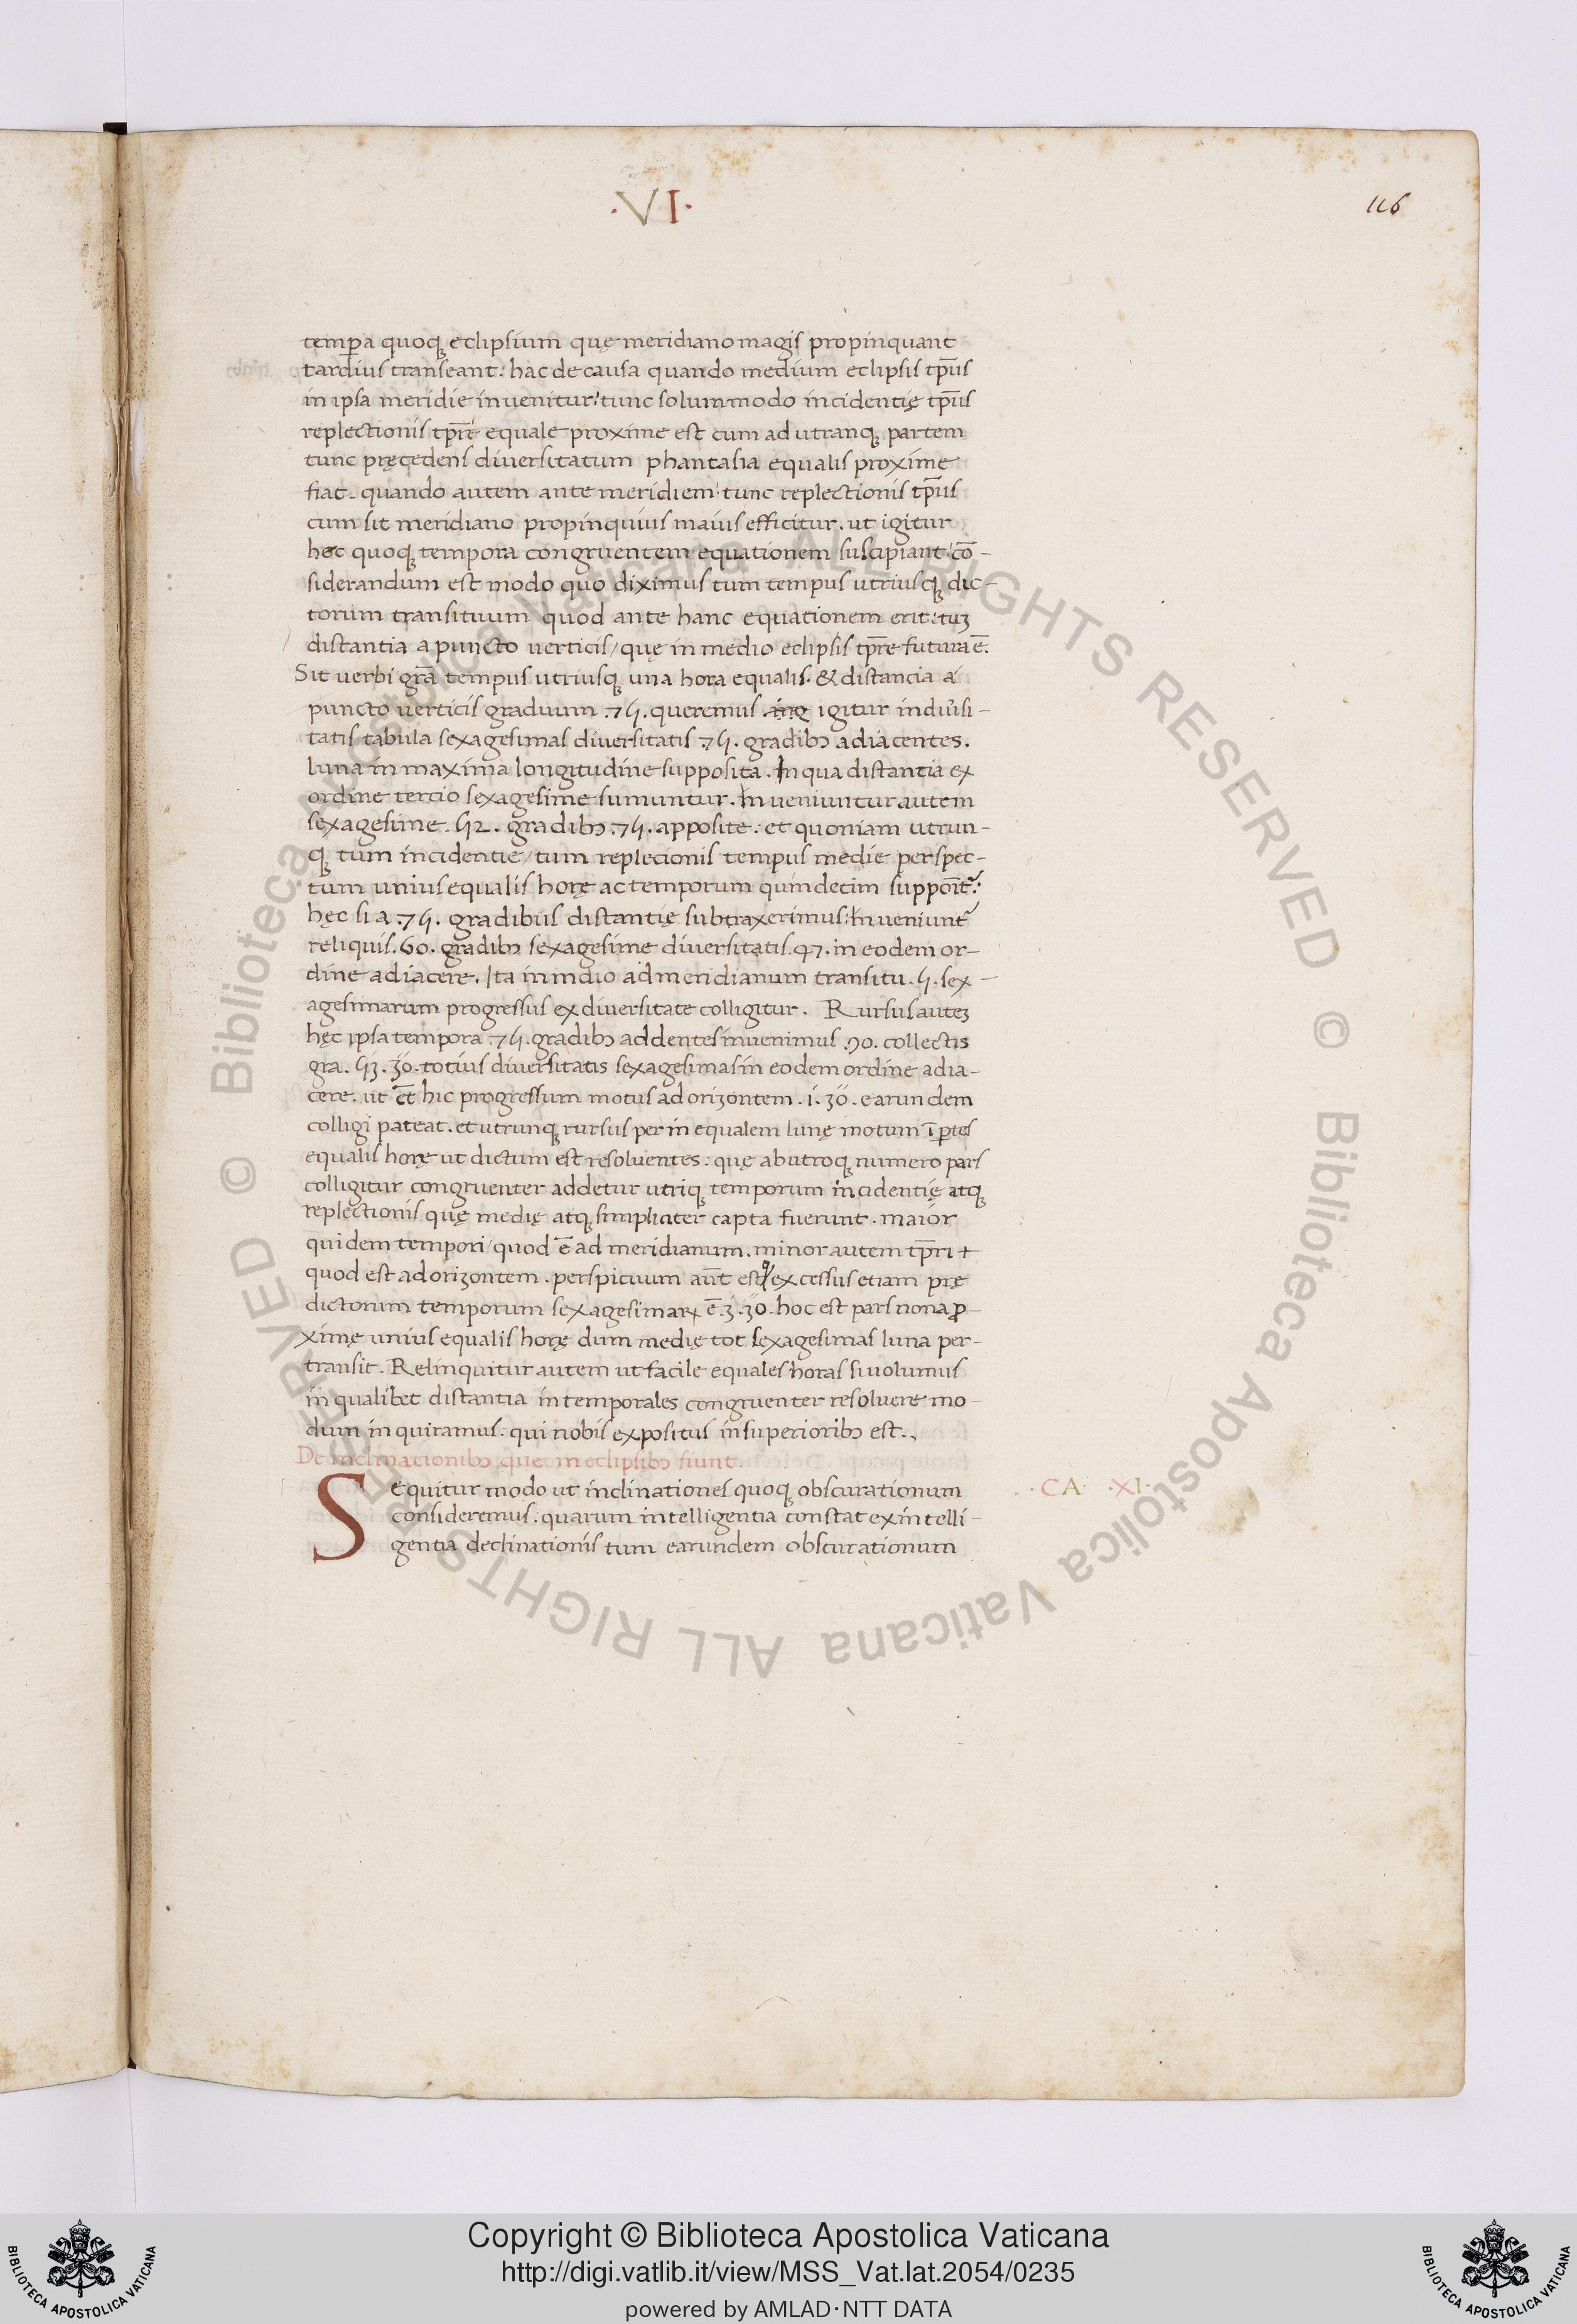 ·VI·
116
tempora quoq; eclipsium quę meridiano magis propinquant
tardius transeant: hac de causa quando medium eclipsis tp̄us
in ipsa meridie invenitur: tunc solummodo incidentię tp̄us
replectionis tp̄ri equale proxime est cum ad utranq; partem
tunc pręcedens diversitatum phantasia equalis proxime
fiat. quando autem ante meridiem: tunc replectionis tp̄us
cum sit meridiano propinquius maius efficitur. ut igitur
hec quoq; tempora congruentem equationem suscipiant: cō-
siderandum est modo quo diximus tum tempus utriusq; dic-
torum transituum quod ante hanc equationem erit: tuʒ
distantia a puncto verticis/ quę in medio eclipsis tp̄re futura ē.
Sit verbi grā tempus utriusq; una hora equalis. & distancia a
puncto verticis graduum .75. queremus igitur in divʼsi-
tatis tabula sexagesimas diversitatis .75. gradibꝫ adiacentes.
luna in maxima longitudine supposita. In qua distantia ex
ordine tercio sexagesime sumuntur. Inveniuntur autem
sexagesime .52. gradibꝫ .75. apposite: et quoniam utrun-
q; tum incidentie/ tum replecionis tempus medie perspec-
tum unius equalis horę ac temporum quindecim suppoīt᷑:
hęc si a .75. gradibus distantię subtraxerimus: Inveniunt᷑
reliquis .60. gradibꝫ sexagesime diversitatis .47. in eodem or-
dine adiacere. Ita in mdio ad meridianum transitu .5. sex-
agesimarum progressus ex diversitate colligitur. Rursus auteʒ
hęc ipsa tempora .75. gradibꝫ addentes invenimus .90. collectis
gra. 53. 30. totius diversitatis sexagesimas in eodem ordine adia-
cere. ut et̄ hic progressum motus ad orizontem .1. 30. earundem
colligi pateat. et utrunq; rursus per inequalem lunę motum ī ꝑtes
equalis horę ut dictum est resolventes: quę ab utroq; numero pars
colligitur congruenter addetur utriq; temporum incidentię atq;
replectionis quę medię atq; simpliciter capta fuerunt. maior
quidem tempori/ quod ē ad meridianum. minor autem tp̄ri
quod est ad orizontem. perspicuum aūt est excessus etiam prę
dictorum temporum sexagesimaꝝ ē .3. 30. hoc est pars nona ꝓ-
ximę unius equalis horę dum medię tot sexagesimas luna per-
transit. Relinquitur autem ut facile equales horas si volumus
in qualibet distantia in temporales congruenter resolvere mo-
dum inquiramus: qui nobis expositus in superioribꝫ est.,
De inclinationibꝫ que in eclipsibꝫ fiunt.
·CA· ·XI·
Sequitur modo ut inclinationes quoq; obscurationum
consideremus: quarum intelligentia constat ex intelli-
gentia declinationis tum earundem obscurationum
Copyright © Biblioteca Apostolica Vaticana
http://digi.vatlib.it/view/MSS_Vat.lat.2054/0235
powered by AMLAD·NTT DATA
BIBLIOTECA APOSTOLICA VATICANA
BIBLIOTECA APOSTOLICA VATICANA
© Biblioteca Apostolica Vaticana ALL RIGHTS RESERVED © Biblioteca Apostolica Vaticana ALL RIGHTS RESERVED